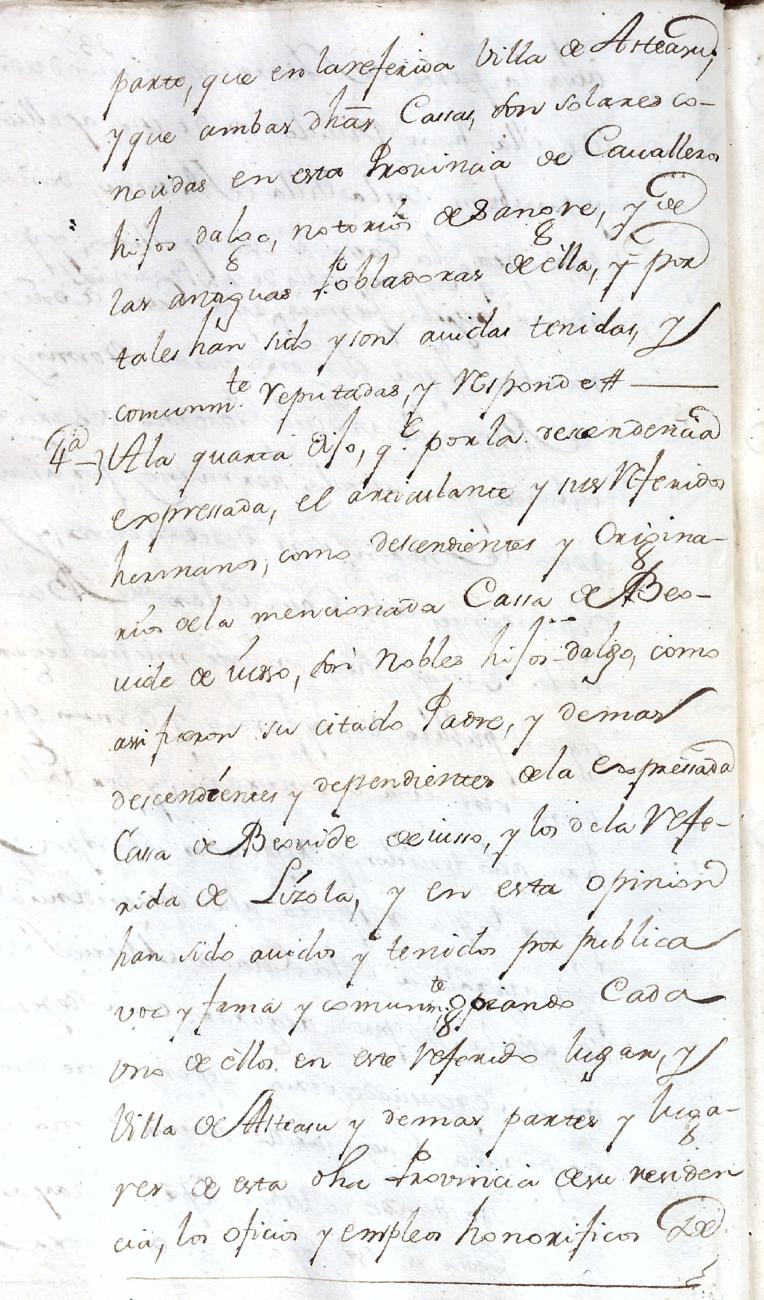 parte, que en la referida Villa de Asteasu,
y que ambas dhas Cassas, son solares co-
nocidas en esta Provincia de Cavalleros
hijos dalgo, notorios de Sangre, y de
las antiguas Pobladoras de ella, y por
tales han sido y son avidas tenidas, y
comunmte reputadas, y responde #
4a A la quarta dijo, qe por la descendencia
expressada, el articulante y sus referidos
hermanos, como descendientes y Origina-
rios de la mencionada Cassa de Beo-
vide de iusso, son Nobles hijos-dalgo, como
assi fueron su citado Padre, y demas
descendientes y dependientes de la expressada
Cassa de Beovide de iusso, y los de la refe-
rida de Lizola, y en esta opinion
han sido avidos y tenidos por publica
voz y fama y comunmte, gozando Cada
uno de ellos en este referido lugar, y
Villa de Asteasu y demas partes y luga-
res de esta dha Provincia de su residen
cia, los oficios y empleos honorificos de